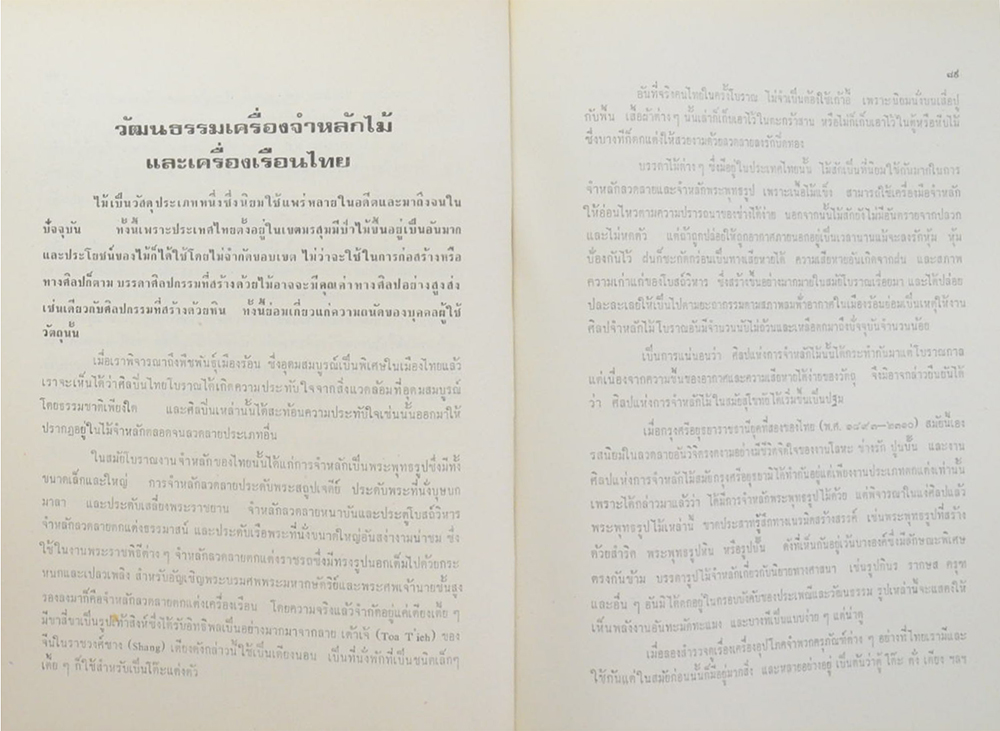 วัฒนธรรมเครื่องจำหลักไม้
และเครื่องเรือนไทย
ไม้เป็นวัสดุประเภทหนึ่งซึ่งนิยมใช้แพร่หลายในอดีตและมาถึงจนใน
ปัจจุบัน ทั้งนี้เพราะประเทศไทยตั้งอยู่ในเขตมรสุมมีป่าไม้ขึ้นอยู่เป็นอันมาก
และประโยชน์ของไม้ก็ได้ใช้โดยไม่จำกัดขอบเขต ไม่ว่าจะใช้ในการก่อสร้างหรือ
ทางศิลปก็ตาม บรรดาศิลปกรรมที่สร้างด้วยไม้อาจจะมีคุณค่าทางศิลปอย่างสูงส่ง
เช่นเดียวกับศิลปกรรมที่สร้างด้วยหิน ทั้งนี้ย่อมเกี่ยวแก่ความถนัดของบุคคลผู้ใช้
วัตถุนั้น
เมื่อเราพิจารณาถึงพืชพันธุ์เมืองร้อน ซึ่งอุดมสมบูรณ์เป็นพิเศษในเมืองไทยแล้ว
เราจะเห็นได้ว่าศิลปินไทยโบราณได้เกิดความประทับใจจากสิ่งแวดล้อมที่อุดมสมบูรณ์
โดยธรรมชาติเพียงใด และศิลปินเหล่านั้นได้สะท้อนความประทับใจเช่นนั้นออกมาให้
ปรากฏอยู่ในไม้จำหลักตลอดจนลวดลายประเภทอื่น
ในสมัยโบราณงานจำหลักของไทยนั้นได้แก่การจำหลักเป็นพระพุทธรูปซึ่งมีทั้ง
ขนาดเล็กและใหญ่ การจำหลักลวดลายประดับพระสถูปเจดีย์ ประดับพระที่นั่งบุษบก
มาลา และประดับเสลี่ยงพระราชยาน จำหลักลวดลายหน้าบันและประตูโบสถ์วิหาร
จำหลักลวดลายตกแต่งธรรมาสน์ และประดับเรือพระที่นั่งขนาดใหญ่อันสง่างามน่าชม ซึ่ง
ใช้ในงานพระราชพิธีต่าง ๆ จำหลักลวดลายตกแต่งราชรถซึ่งมีทรงรูปนอกเต็มไปด้วยกระ
หนกและเปลวเพลิง สำหรับอัญเชิญพระบรมศพพระมหากษัตริย์และพระศพเจ้านายชั้นสูง
รองลงมาก็คือจำหลักลวดลายตกแต่งเครื่องเรือน โดยความจริงแล้วจำกัดอยู่แค่เตียงเตี้ย ๆ
มีขาสี่ขาเป็นรูปเท้าสิงห์ซึ่งได้รับอิทธิพลเป็นอย่างมากมาจากลาย เต้าเจ้ (Toa T'ieh) ของ
จีนในราชวงศ์ชาง (Shang) เตียงดังกล่าวนี้ใช้เป็นเตียงนอน เป็นที่นั่งพักที่เป็นชนิดเล็กๆ
เตี้ย ๆ ก็ใช้สำหรับเป็นโต๊ะแต่งตัว
๘๙
อันที่จริงคนไทยในครั้งโบราณ ไม่จำเป็นต้องใช้เก้าอี้ เพราะนิยมนั่งบนเสื่อปู
กับพื้น เสื้อผ้าต่างๆ นั้นเล่าก็เก็บเอาไว้ในตะกร้าสาน หรือไม่ก็เก็บเอาไว้ในตู้หรือหีบไม้
ซึ่งบางทีก็ตกแต่งให้สวยงามด้วยลวดลายลงรักปิดทอง
บรรดาไม้ต่างๆ ซึ่งมีอยู่ในประเทศไทยนั้น ไม้สักเป็นที่นิยมใช้กันมากในการ
จำหลักลวดลายและจำหลักพระพุทธรูป เพราะเนื้อไม้แข็ง สามารถใช้เครื่องมือจำหลัก
ให้อ่อนไหวตามความปรารถนาของช่างได้ง่าย นอกจากนั้นไม้สักยังไม่มีอันตรายจากปลวก
และไม่หดตัว แต่ถ้าถูกปล่อยให้ถูกอากาศภายนอกอยู่เป็นเวลานานแม้จะลงรักหุ้ม หุ้ม
ป้องกันไว้ ฝนก็ชะกัดกร่อนเป็นทางเสียหายได้ ความเสียหายอันเกิดจากฝน และสภาพ
ความเก่าแก่ของโบสถ์วิหาร ซึ่งสร้างขึ้นอย่างมากมายในสมัยโบราณเรื่อยมา และได้ปล่อย
ปละละเลยให้เป็นไปตามยะถากรรมตามสภาพลมฟ้าอากาศในเมืองร้อนย่อมเป็นเหตุให้งาน
ศิลปจำหลักไม้โบราณอันมีจำนวนนับไม่ถ้วนและเหลือตกมาถึงปัจจุบันจำนวนน้อย
เป็นการแน่นอนว่า ศิลปแห่งการจำหลักไม้นั้นได้กระทำกันมาแต่โบราณกาล
แต่เนื่องจากความชื้นของอากาศและความเสียหายได้ง่ายของวัตถุ จึงมิอาจกล่าวยืนยันได้
ว่า ศิลปแห่งการจำหลักไม้ในสมัยสุโขทัยได้เริ่มขึ้นเป็นปฐม
เมื่อกรุงศรีอยุธยาราชธานียุคที่สองของไทย (พ.ศ. ๑๘๙๓—๒๓๑๐) สมัยนี้เอง
รสนิยมในลวดลายอันวิจิตรงดงามอย่างมีชีวิตจิตใจของงานโลหะ ช่างรัก ปูนปั้น และงาน
ศิลปแห่งการจำหลักไม้สมัยกรุงศรีอยุธยามิได้ทำกันอยู่แต่เพียงงานประเภทตกแต่งเท่านั้น
เพราะได้กล่าวมาแล้วว่า ได้มีการจำหลักพระพุทธรูปไม้ด้วย แต่พิจารณาในแง่ศิลปแล้ว
พระพุทธรูปไม้เหล่านี้ ขาดประสาทรู้สึกทางเนรมิตสร้างสรรค์ เช่นพระพุทธรูปที่สร้าง
ด้วยสำริด พระพุทธรูปหิน หรือรูปปั้น ดังที่เห็นกันอยู่เว้นบางองค์ซึ่งมีลักษณะพิเศษ
ตรงกันข้าม บรรดารูปไม้จำหลักเกี่ยวกับนิยายทางศาสนา เช่นรูปกินร รากษส ครุฑ
และอื่น ๆ อันมิได้ตกอยู่ในกรอบบังคับของประเพณีและวัฒนธรรม รูปเหล่านี้จะแสดงให้
เห็นพลังงานอันทะมัดทะแมง และบางทีเป็นแบบง่าย ๆ แต่น่าดู
เมื่อลองสำรวจดูเรื่องเครื่องอุปโภคจำพวกครุภัณฑ์ต่าง ๆ อย่างที่ไทยเรามีและ
ใช้กันแต่ในสมัยก่อนนั้นก็มีอยู่มากสิ่ง และหลายอย่างอยู่ เป็นต้นว่าตู้ โต๊ะ ตั่ง เตียง ฯลฯ